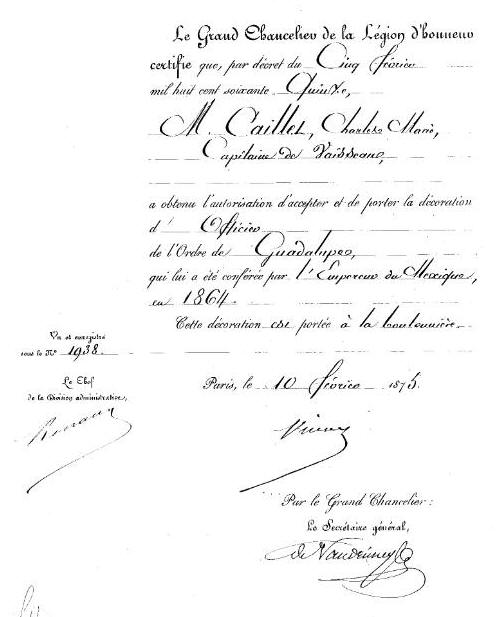 Le Grand Chancelier de la Légion d'honneur
certifie que, par décret du Cinq février
mil huit cent soixante Quinze,
M. Caillet, Charles Marie,
Capitaine de Vaisseau,
a obtenu l'autorisation d'accepter et de porter la décoration
d' Officier
de l'Ordre de Guadalupe,
qui lui a été conférée par l'Empereur du Mexique,
en 1864.
Cette décoration est portée à la boutonnière.
Vu et enregistré
sous le No 1938.
Le Chef
de la Division administrative,
Paris, le 10 février 1875.
Par le Grand Chancelier:
Le Secrétaire général,